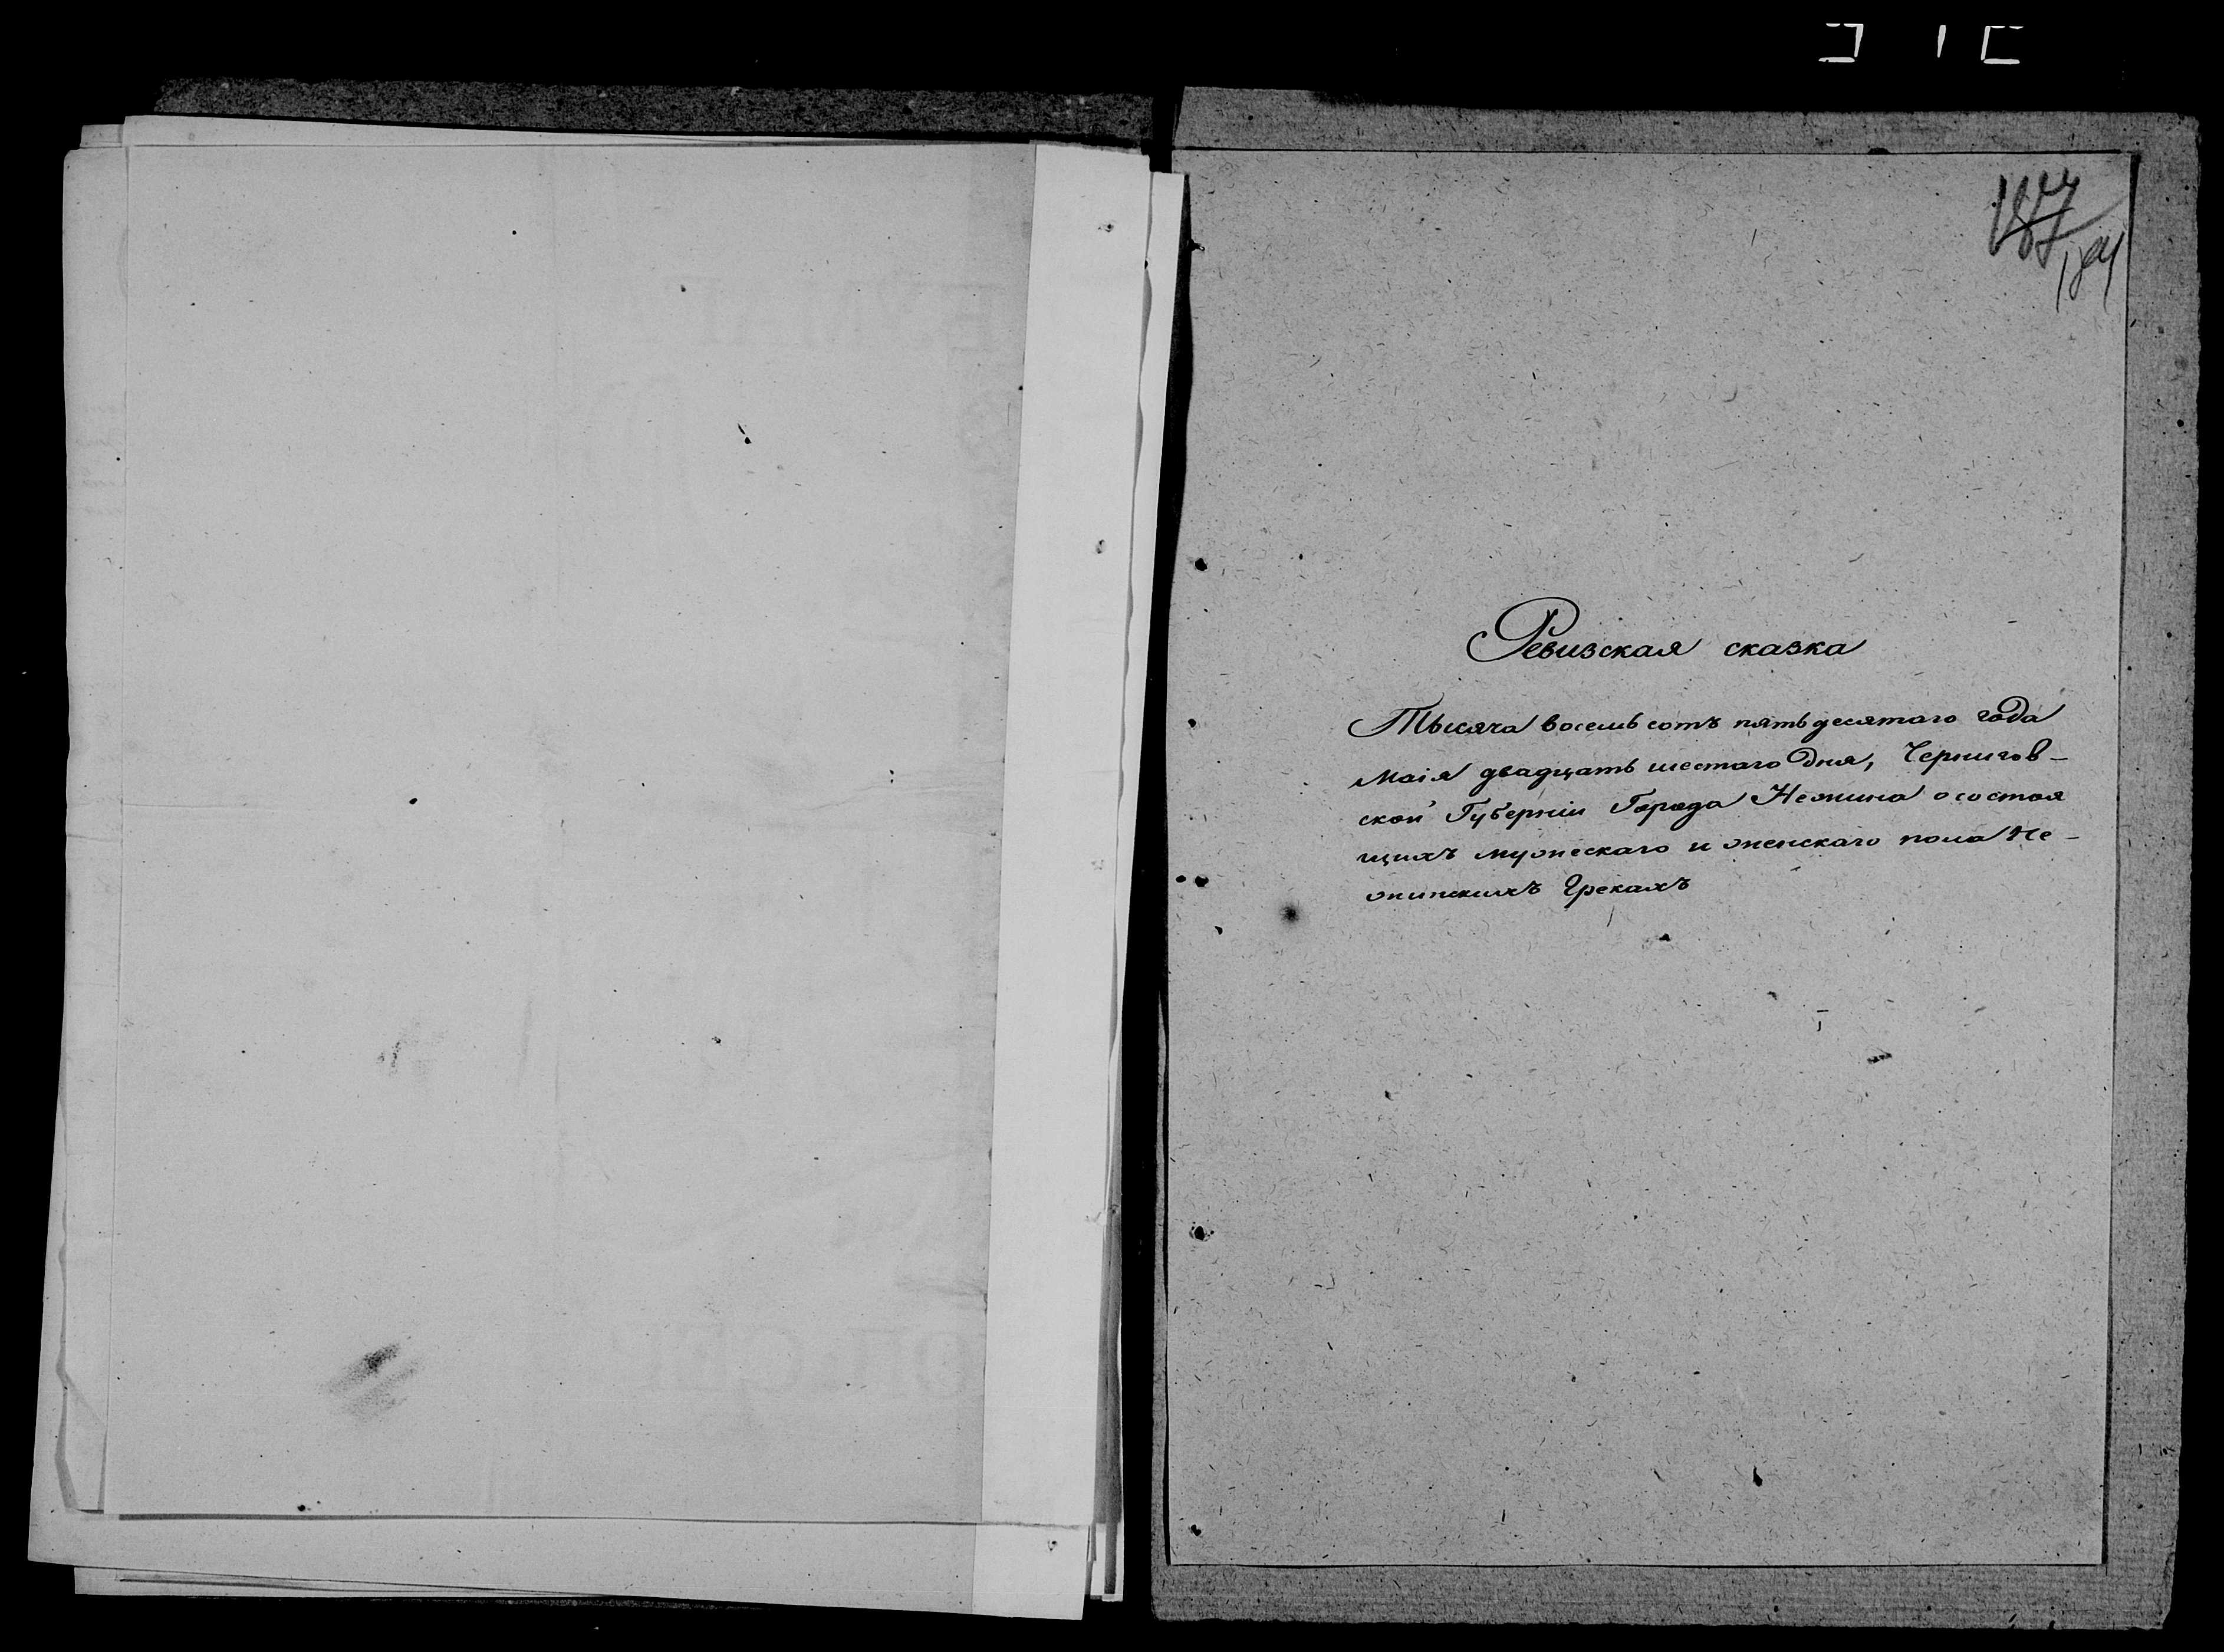 Ревизская сказка
Тысяча восемь сотъ пятьдесятаго года
Маія двадцать шестаго дня, Чернигов-
ской Губерніи Города Нежина о состоя
щихъ мужескаго и женскаго пола Не-
жинскихъ Грекахъ